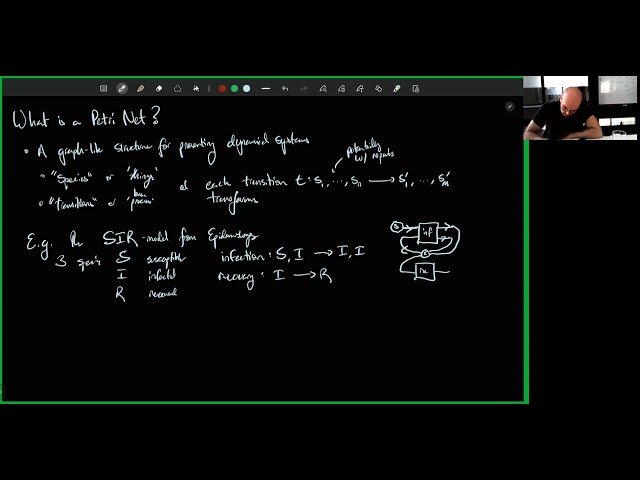 What is a Petri Net?
• A graph-like structure for presenting dynamical systems
potentially
w/ repeats
• "Species" or 'things'
each transition t: s₁, ..., sₙ → s'₁, ..., s'ₘ
• "transitions" or
transforms
E.g. The SIR-model from Epidemiology
3 species S susceptible infection: S, I → I, I
I infected recovery: I → R
R recovered
S inf
I
rec